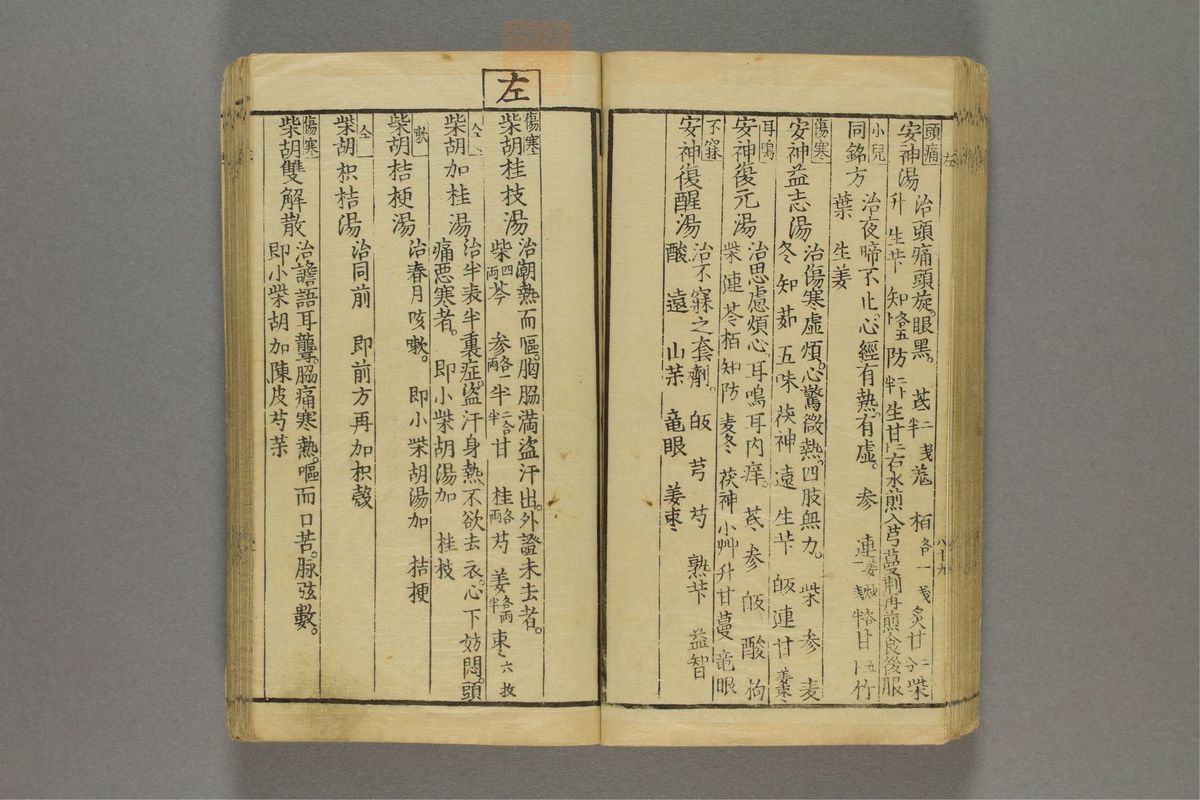 頭痛
安神湯
治頭痛頭旋。眼黒。 芪 半 二戔 羗 栢 各一戔 炙甘 二 柴
升 生芐 知 各五 防 半 生甘 二 右水煎入芎蔓荊再煎食後服
小兒
同銘方
治夜啼不止。心經有熱有虛。 参 連 甘 五 竹
葉 生姜
傷寒
安神益志湯
治傷寒虛煩。心驚微熱。四肢無力。 柴 参 麦
冬 知 茹 五味 茯神 遠 生芐 皈 連 甘 姜棗
耳鳴
安神復元湯
治思慮煩心。耳鳴耳內痒。 芪 参 皈 酸 狗
柴 連 芩 栢 知 防 麦冬 茯神 小艸 升 甘 蔓 竜眼
不寐
安神復醒湯
治不寐之套劑。 皈 芎 芍 熟芐 益智
酸 遠 山茱 竜眼 姜棗
八十九
左
傷寒
柴胡桂枝湯
治潮熱而嘔。胸脇満盗汗出。外證未去者。
柴 四両 芩 参 各一両 半 二合半 甘 桂 各両 芍 姜 各両半 棗 六枚
仝
柴胡加桂湯
治半表半裏症。盗汗身熱不欲去衣。心下妨悶。頭
痛悪寒者。 即小柴胡湯加 桂枝
嗽
柴胡桔梗湯
治春月咳嗽。 即小柴胡湯加 桔梗
仝
柴胡枳桔湯
治同前 即前方再加枳殻
傷寒
柴胡雙解散
治譫語耳聾。脇痛寒熱。嘔而口苦。脉弦數。
即小柴胡加陳皮芍茱